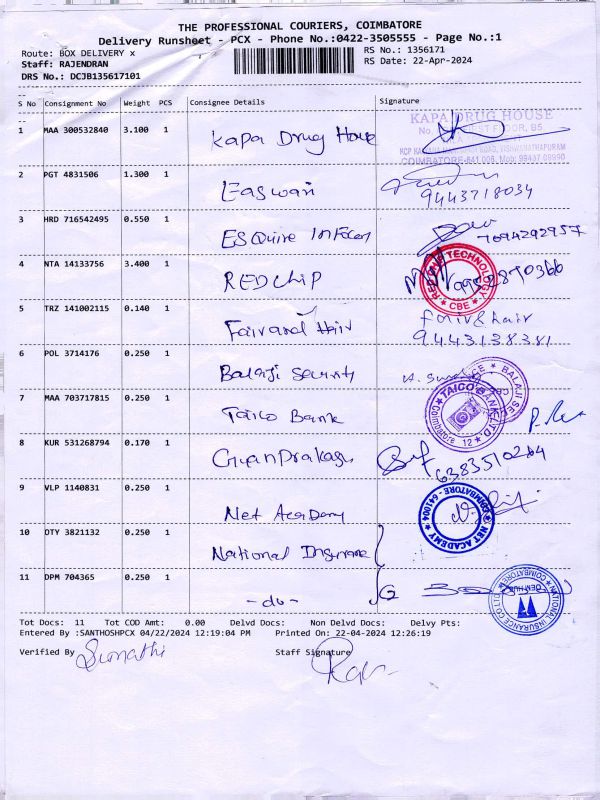 THE PROFESSIONAL COURIERS, COIMBATORE
Delivery Runsheet - PCX - Phone No.:0422-3505555 - Page No.:1
Route: BOX DELIVERY x
RS No.: 1356171
Staff: RAJENDRAN
RS Date: 22-Apr-2024
DRS No.: DCJB135617101
S No Consignment No Weight PCS Consignee Details Signature
1 MAA 300532840 3.100 1 Kapa Drug House
KAPA DRUG HOUSE
COIMBATORE-641 006. Mob: 99437 08990
2 PGT 4831506 1.300 1 Easwari
9443718034
3 HRD 716542495 0.550 1 ESQuire Infocom
7694292957
4 NTA 14133756 3.400 1 REDChip
RED ONE TECHNOLOGY * CBE *
5 TRZ 141002115 0.140 1 Fair and Hair
fair & hair
9444313 8381
6 POL 3714176 0.250 1 Balaji Security
BALAJI SE
7 MAA 703717815 0.250 1 Taico Bank
TAICO BANK LTD Coimbatore 12
8 KUR 531268794 0.170 1 Gyan Prakash
6383510264
9 VLP 1140831 0.250 1 Net Academy
NET ACADEMY * COIMBATORE - 641004
10 OTY 3821132 0.250 1 National Insurance
11 DPM 704365 0.250 1 -do-
NATIONAL INSURANCE CO LTD COIMBATORE
Tot Docs: 11 Tot COD Amt: 0.00 Delvd Docs: Non Delvd Docs: Delvy Pts:
Entered By :SANTHOSHPCX 04/22/2024 12:19:04 PM Printed On: 22-04-2024 12:26:19
Verified By Sumathi Staff Signature